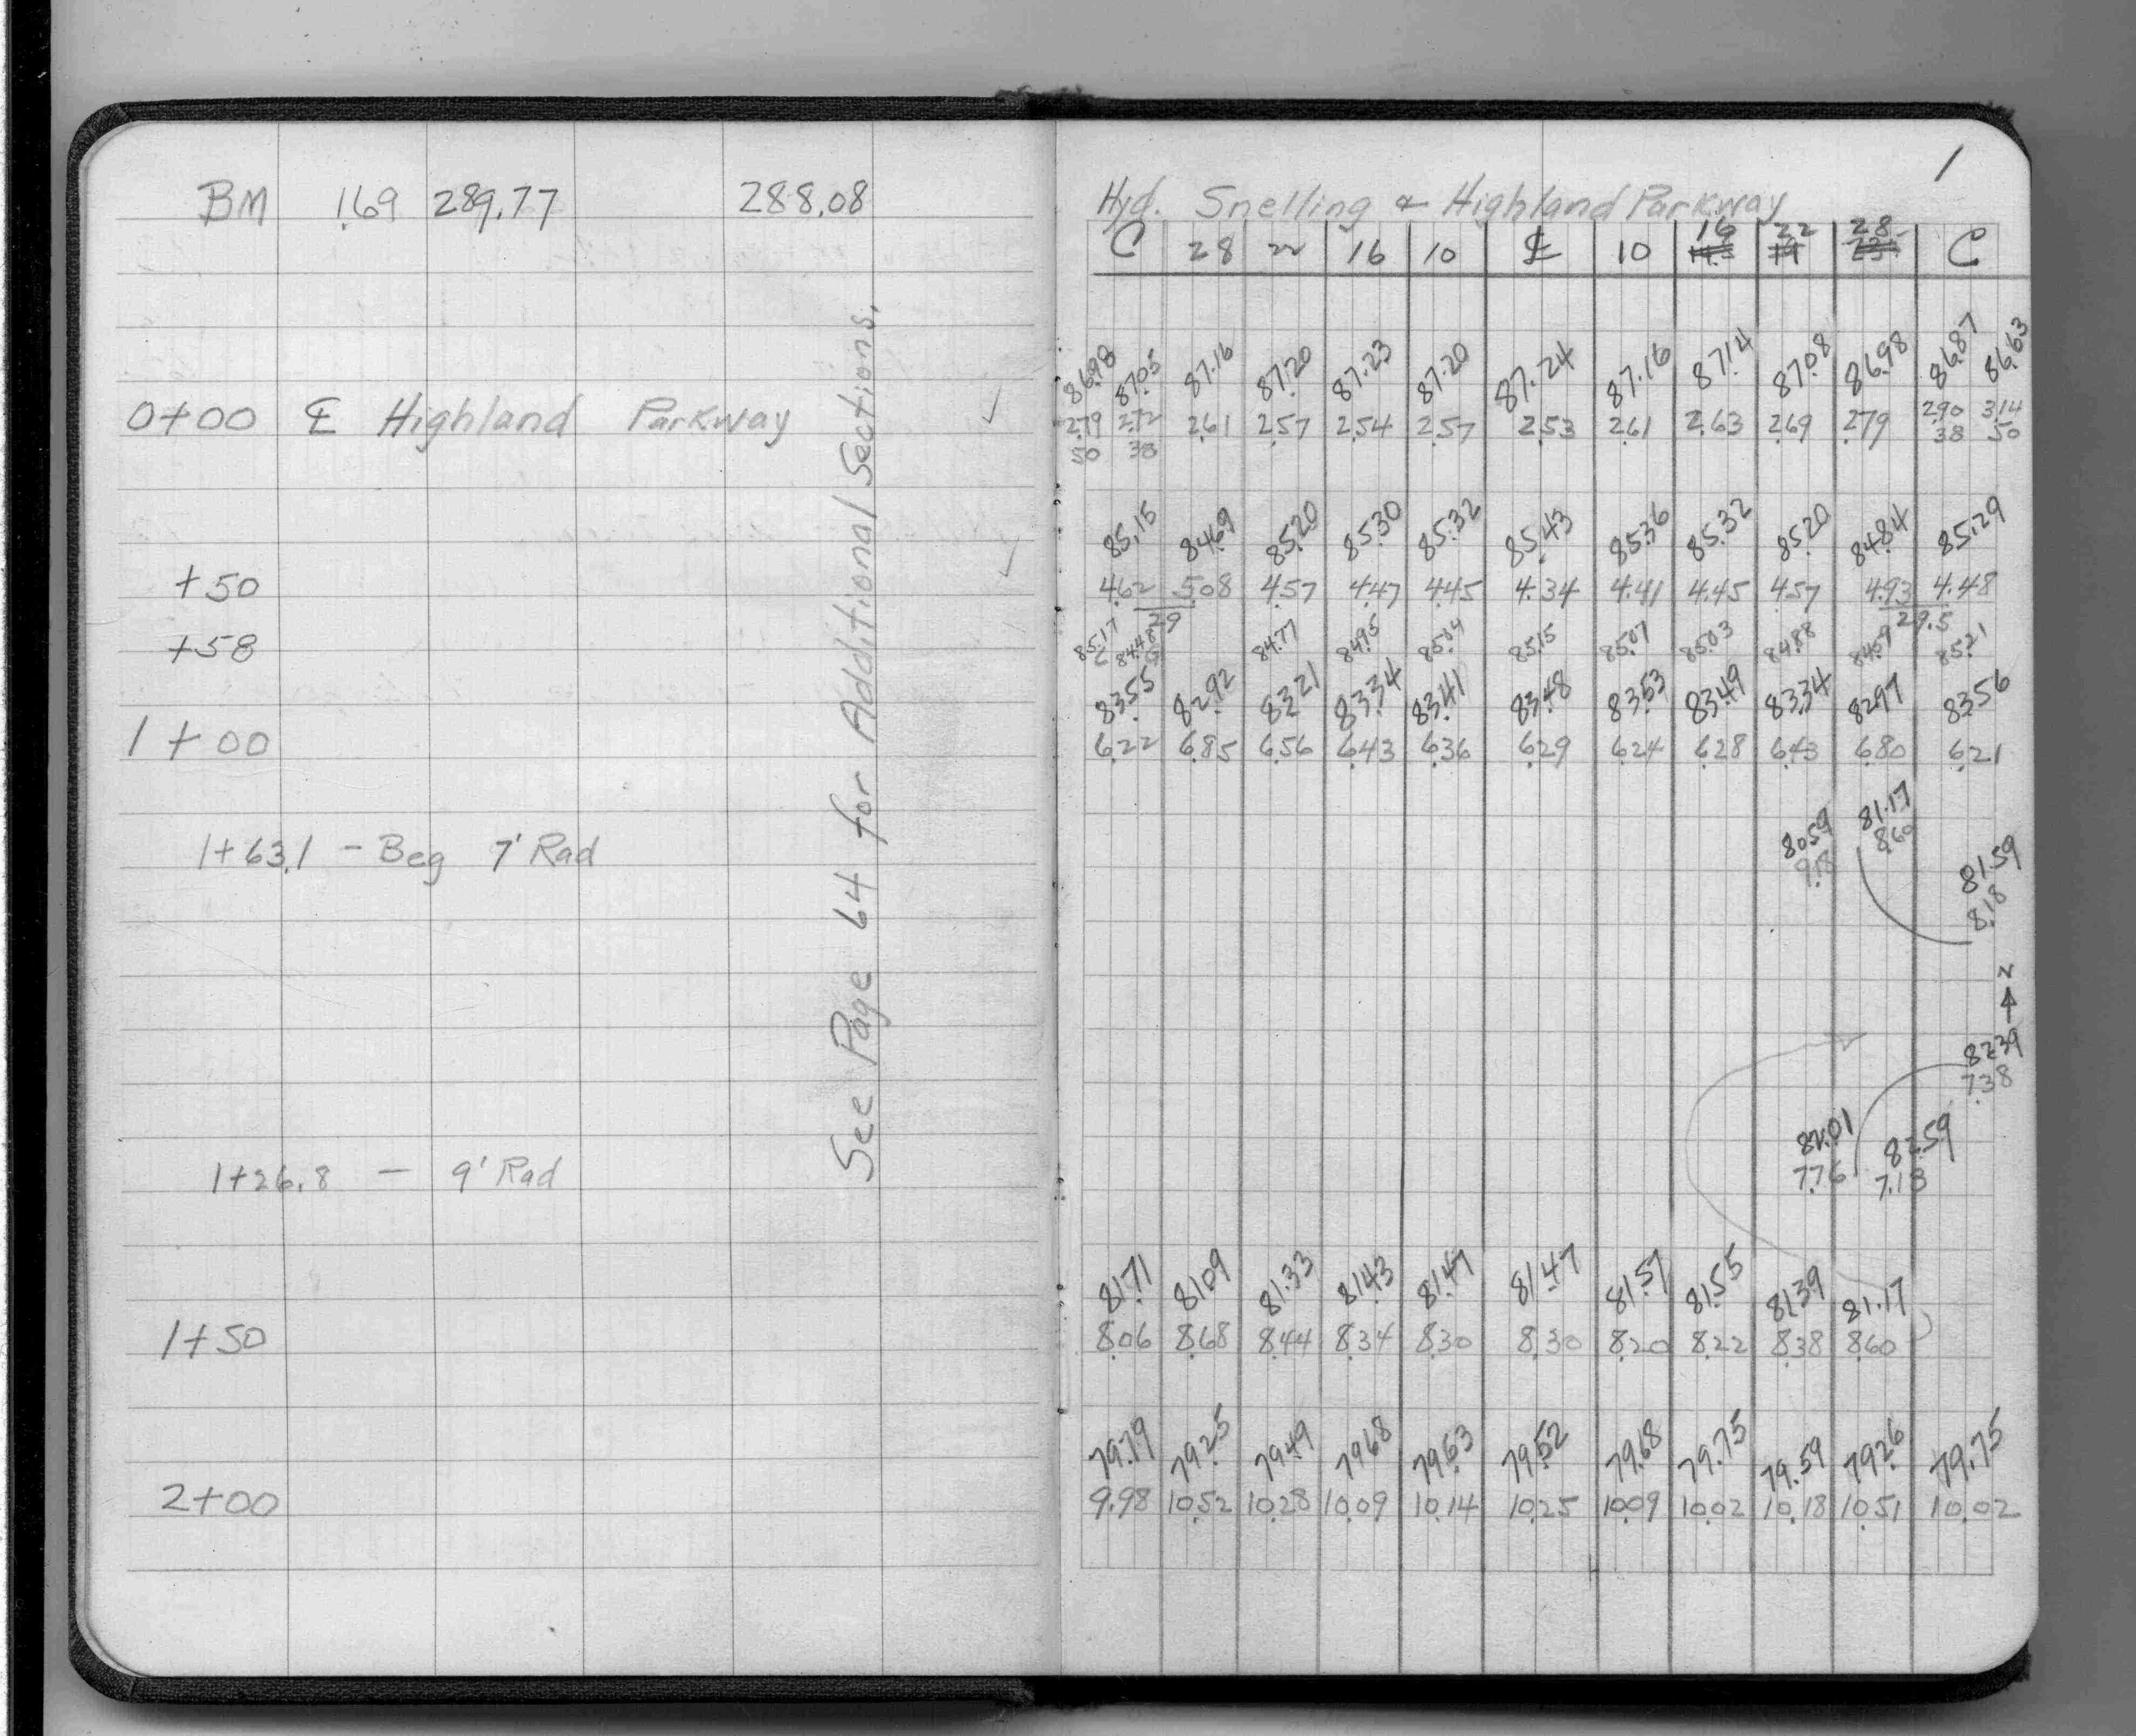 1
BM 1.69 289.77 288.08 Hyd. Snelling & Highland Parkway
C 28 22 16 10 ℄ 10 16 22 28 C
86.98 87.05 87.16 87.20 87.23 87.20 87.24 87.16 87.14 87.08 86.98 86.87 86.63
0+00 ℄ Highland Parkway ✓ 2.79 2.72 2.61 2.57 2.54 2.57 2.53 2.61 2.63 2.69 2.79 2.90 3.14
50 38 38 50
85.15 84.69 85.20 85.30 85.32 85.43 85.36 85.32 85.20 84.84 85.29
+50 ✓ 4.62 5.08 4.57 4.47 4.45 4.34 4.41 4.45 4.57 4.93 4.48
29 29.5
+58 85.17 84.48 84.77 84.95 85.04 85.15 85.07 85.03 84.88 84.59 85.21
C G
83.55 82.92 83.21 83.34 83.41 83.48 83.53 83.49 83.34 82.97 83.56
1+00 6.22 6.85 6.56 6.43 6.36 6.29 6.24 6.28 6.43 6.80 6.21
See Page 64 for Additional Sections.
80.59 81.17
1+63.1 - Beg 7' Rad 9.18 8.60
81.59
8.18
N
82.39
7.38
82.01 82.59
1+26.8 - 9' Rad 7.76 7.18
81.71 81.09 81.33 81.43 81.47 81.47 81.57 81.55 81.39 81.17
1+50 8.06 8.68 8.44 8.34 8.30 8.30 8.20 8.22 8.38 8.60
79.79 79.25 79.49 79.68 79.63 79.52 79.68 79.75 79.59 79.26 79.75
2+00 9.98 10.52 10.28 10.09 10.14 10.25 10.09 10.02 10.18 10.51 10.02